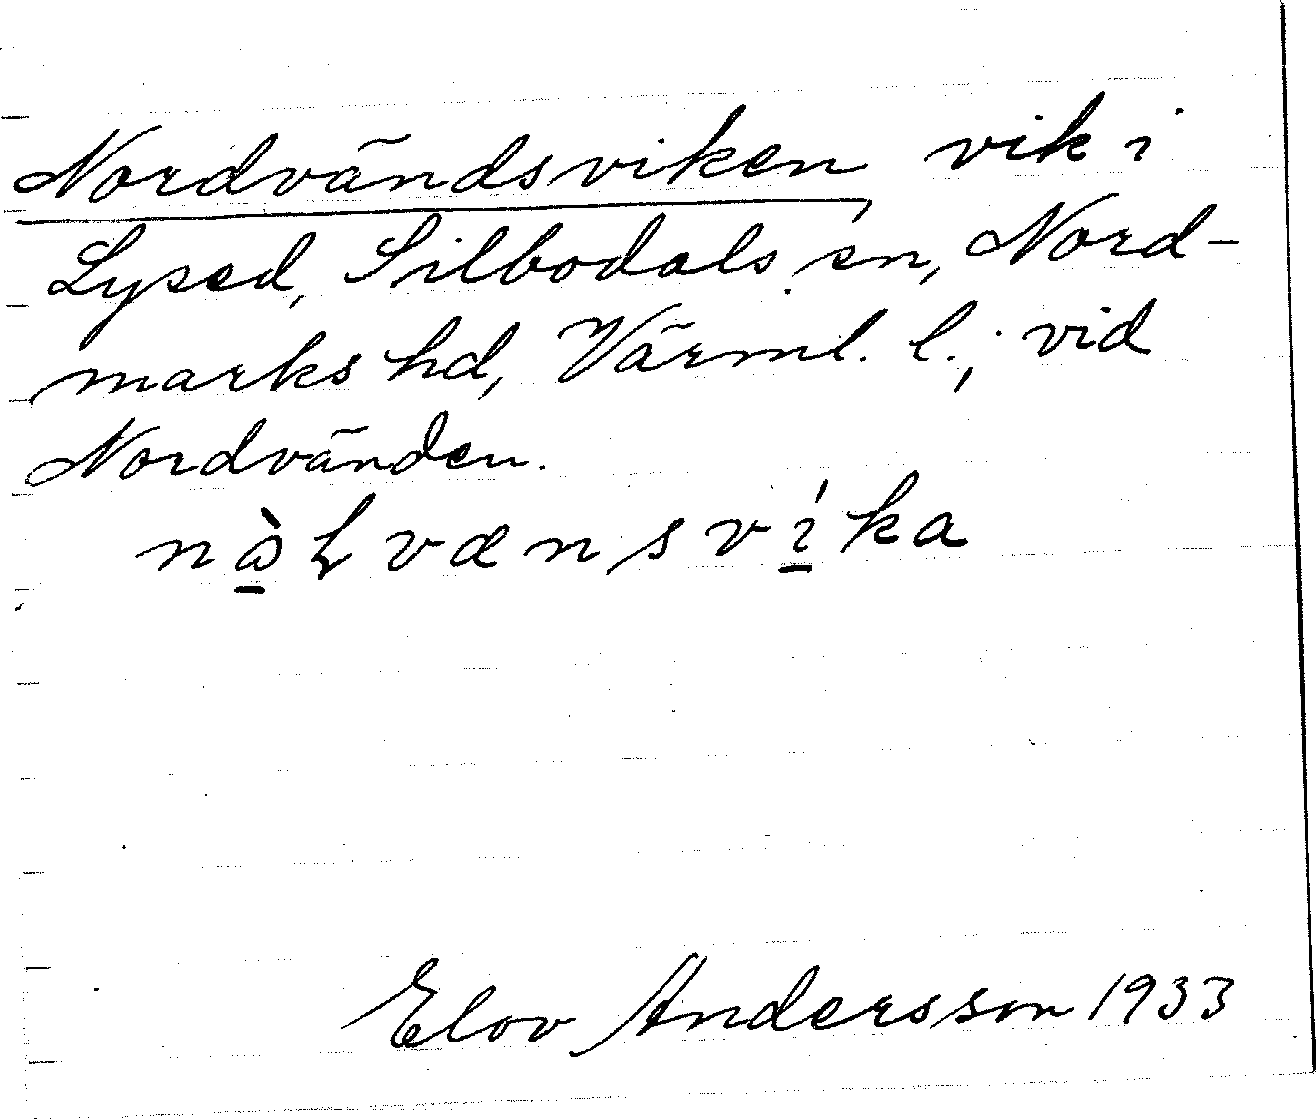 Nordvändsviken, vik i
Lysed, Silbodals sn, Nord-
marks hd, Värml. l.; vid
Nordvänden.
Elov Andersson 1933